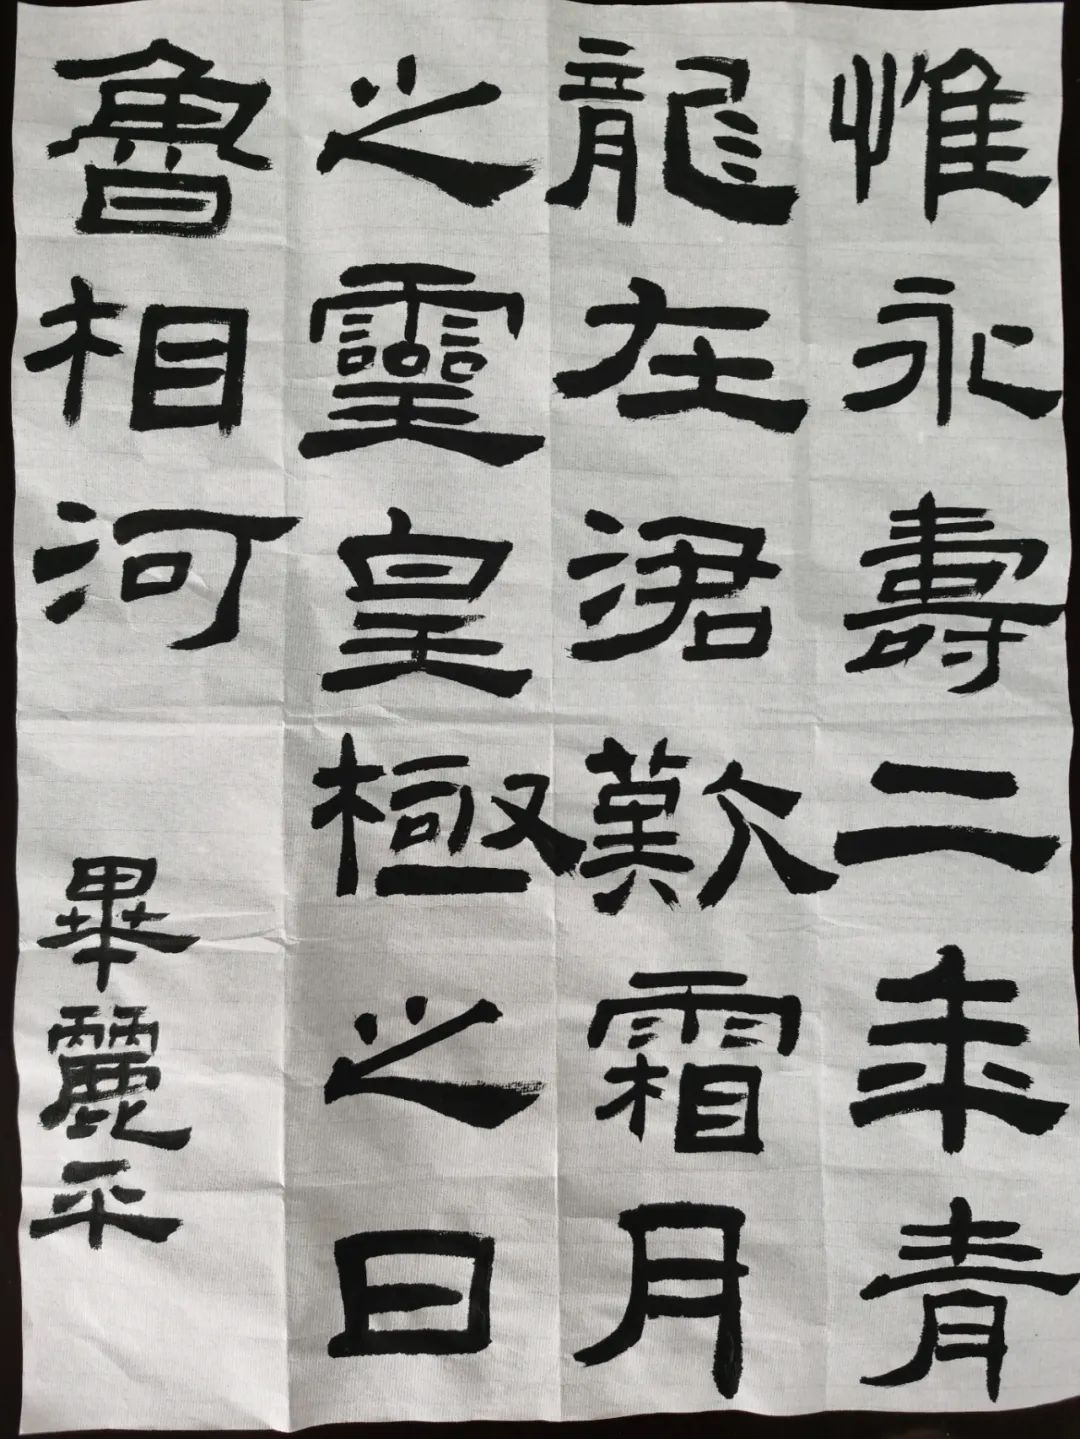 惟永壽二年青
龍在涒歎霜月
之靈皇極之日
魯相河
畢麗平